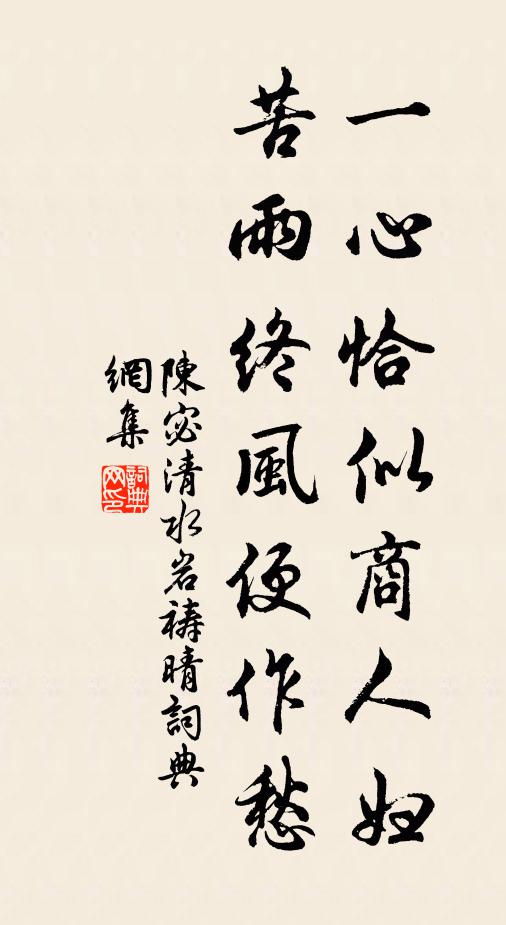 一心恰似商人婦
苦雨終風便作愁
陳宓清水岩祷晴詞典
網集
詞典网印